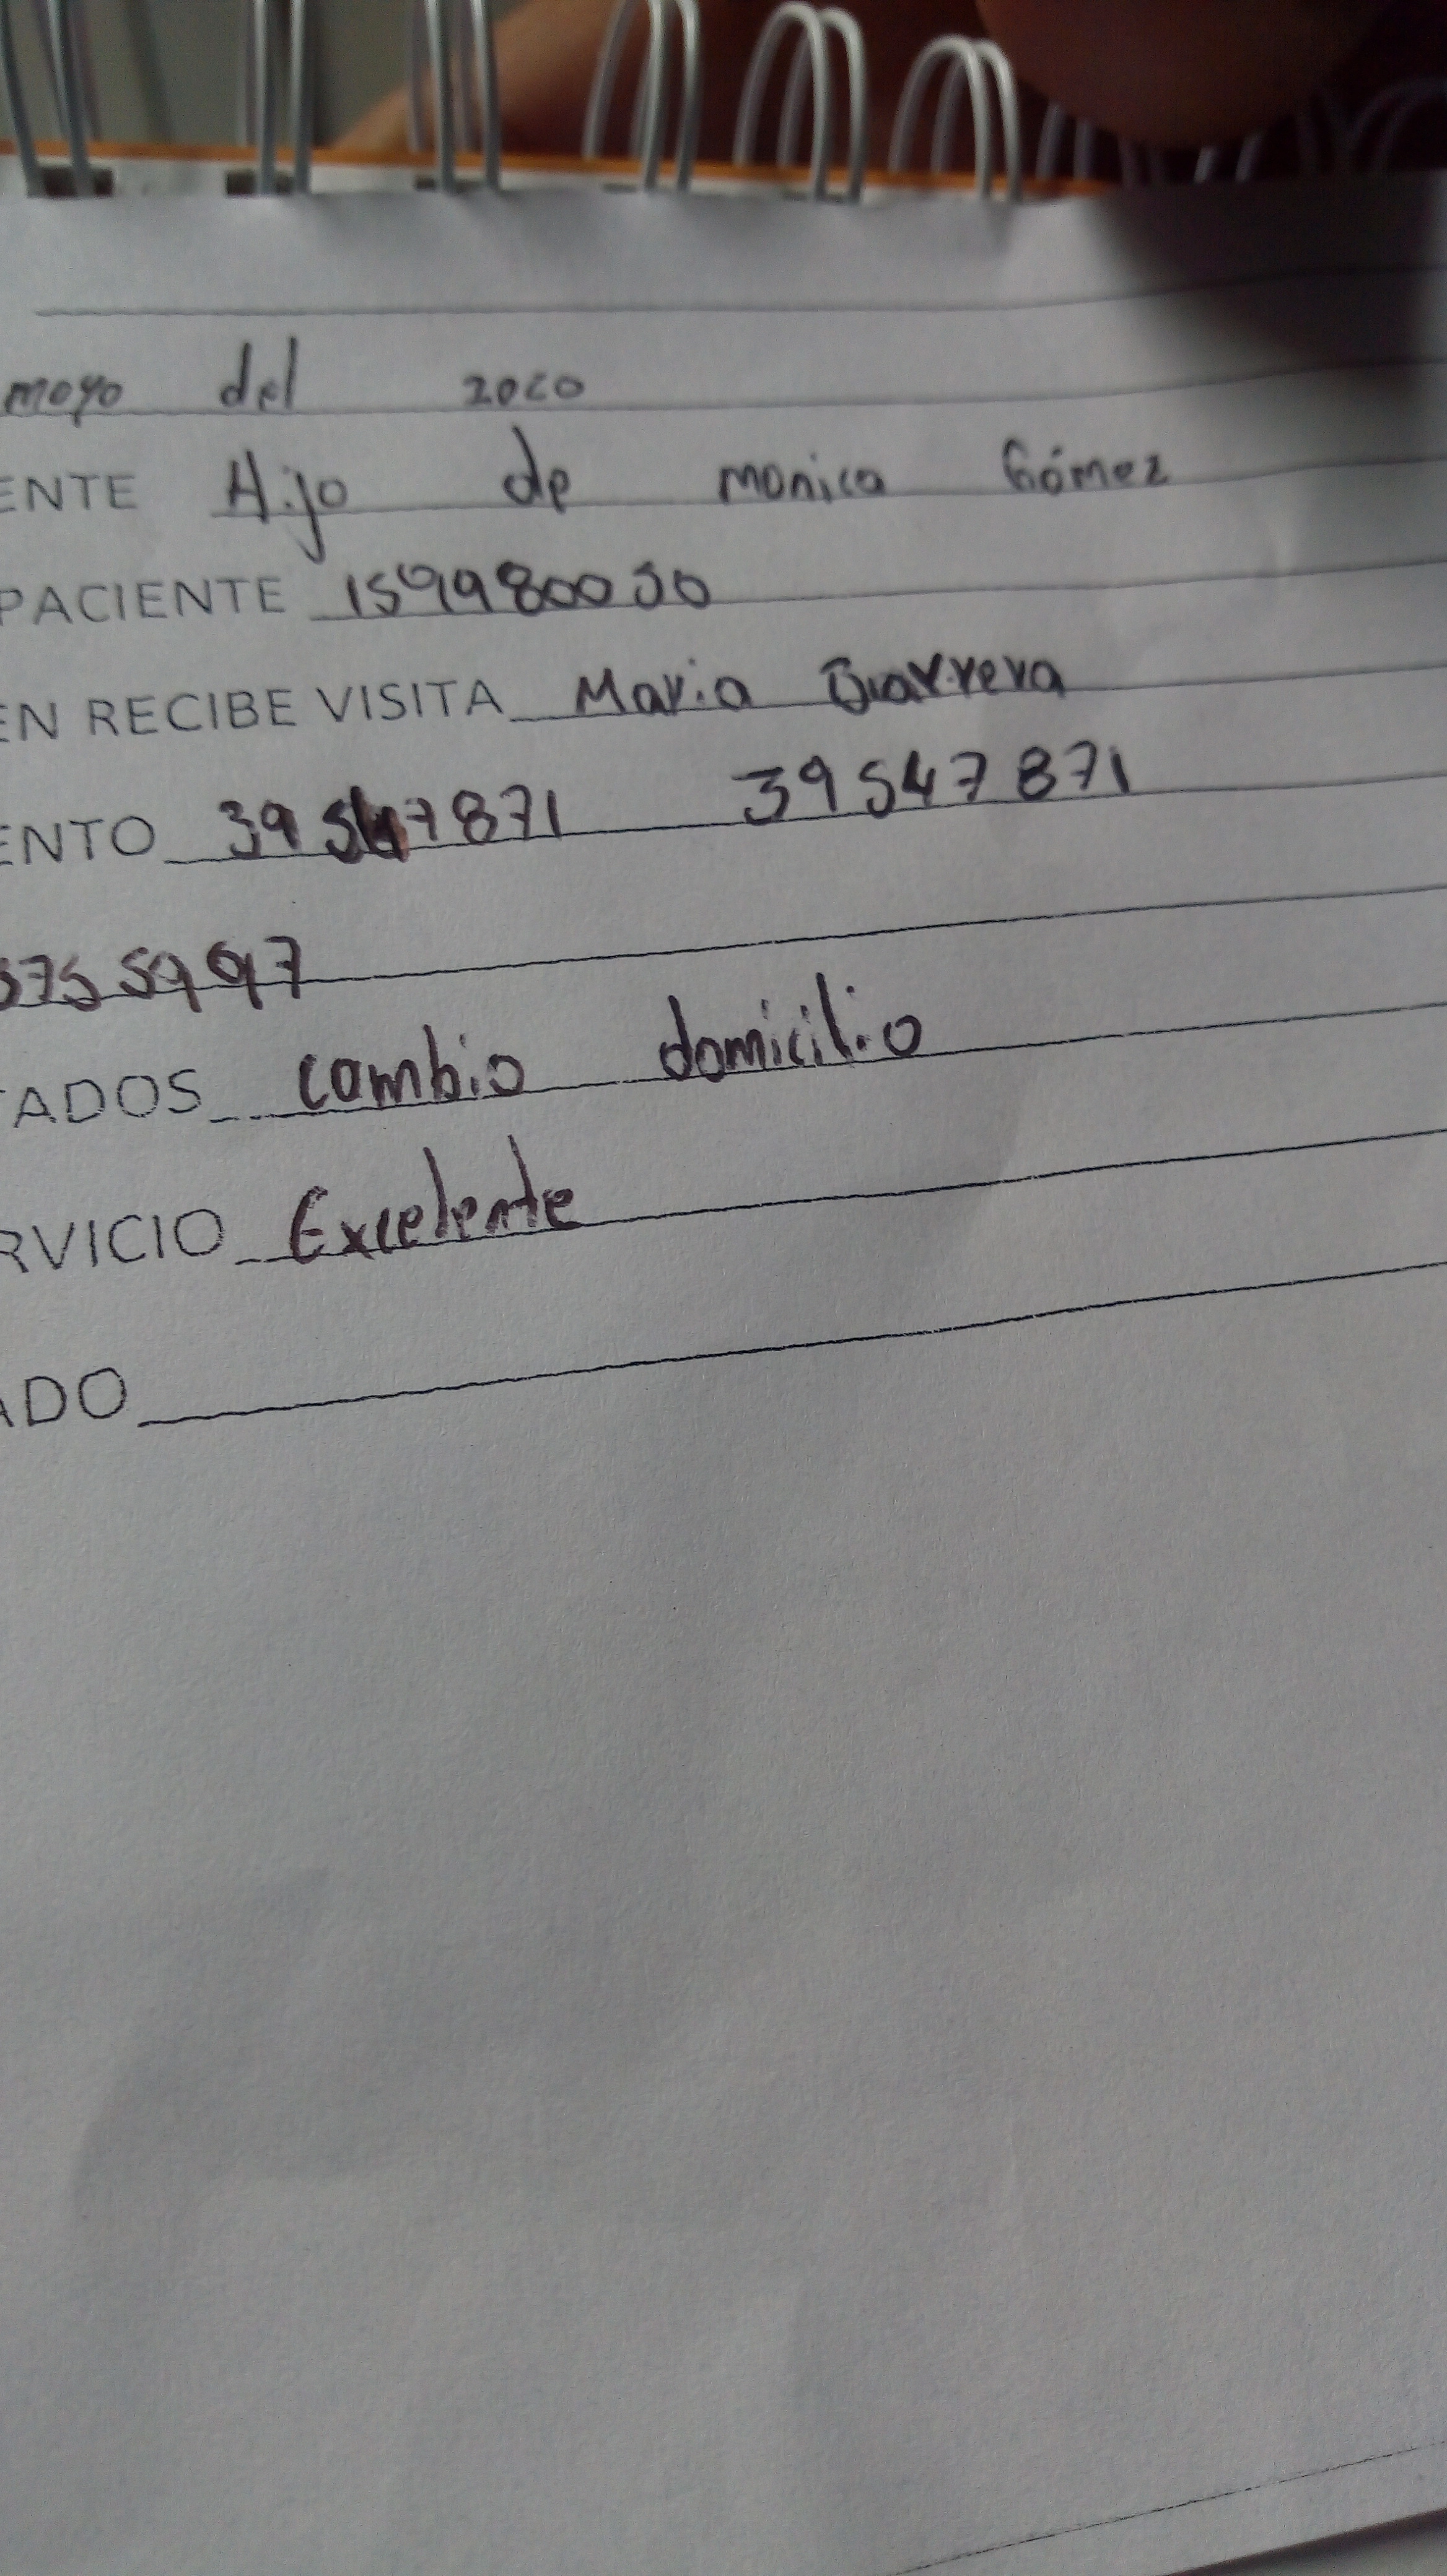 mayo del 2020
ENTE Hijo de monica Gómez
PACIENTE 1599980050
EN RECIBE VISITA Maria
ENTO 39547871 39547871
3755997
TADOS cambio domicilio
RVICIO Excelente
ADO